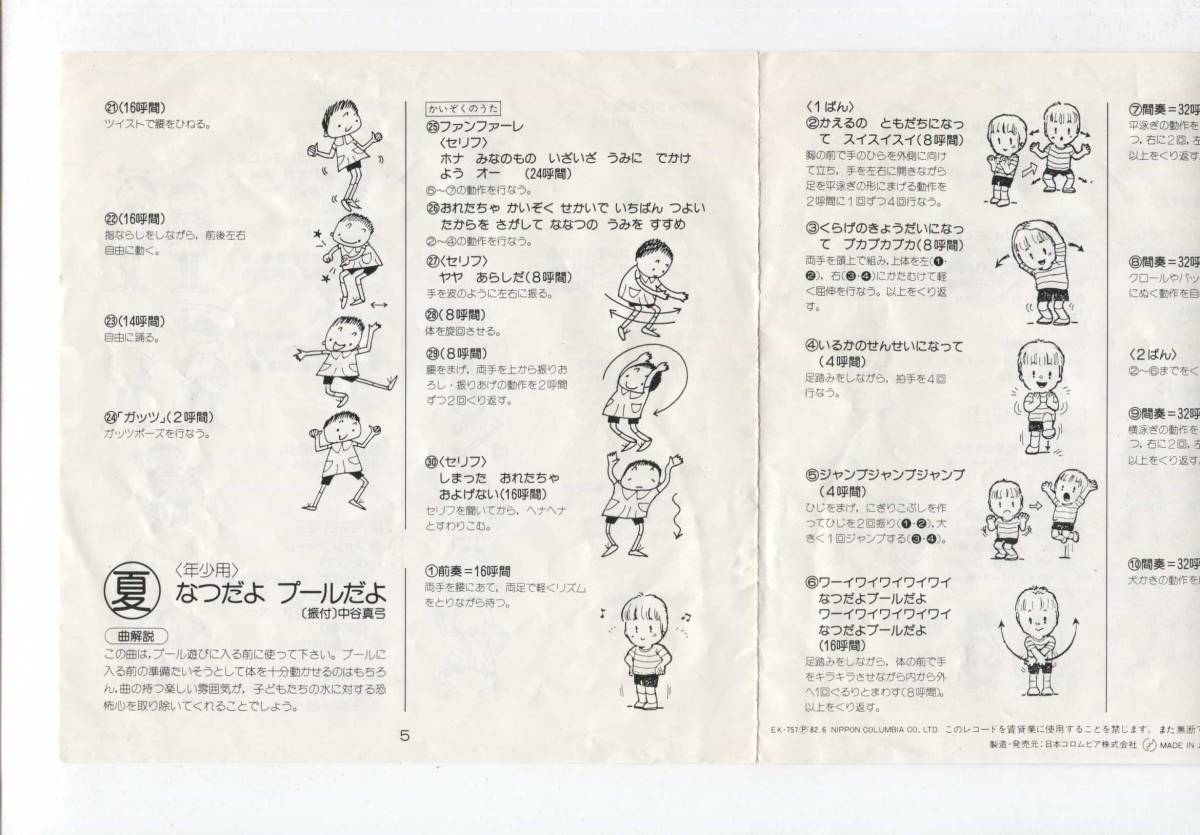 ㉑(16呼間)
ツイストで腰をひねる。
㉒(16呼間)
指ならしをしながら，前後左右
自由に動く。
㉓(14呼間)
自由に踊る。
㉔「ガッツ」(2呼間)
ガッツポーズを行なう。
夏
〈年少用〉
なつだよ プールだよ
〔振付〕中谷真弓
曲解説
この曲は，プール遊びに入る前に使って下さい。プールに
入る前の準備たいそうとして体を十分動かせるのはもちろ
ん，曲の持つ楽しい雰囲気が，子どもたちの水に対する恐
怖心を取り除いてくれることでしょう。
かいぞくのうた
㉕ファンファーレ
〈セリフ〉
ホナ みなのもの いざいざ うみに でかけ
よう オー (24呼間)
⑥〜⑦の動作を行なう。
㉖おれたちゃ かいぞく せかいで いちばん つよい
たからを さがして ななつの うみを すすめ
②〜④の動作を行なう。
㉗〈セリフ〉
ヤヤ あらしだ(8呼間)
手を波のように左右に振る。
㉘(8呼間)
体を旋回させる。
㉙(8呼間)
腰をまげ，両手を上から振りお
ろし・振りあげの動作を2呼間
ずつ2回くり返す。
㉚〈セリフ〉
しまった おれたちゃ
およげない(16呼間)
セリフを聞いてから，ヘナヘナ
とすわりこむ。
①前奏=16呼間
両手を腰にあて，両足で軽くリズム
をとりながら待つ。
5
〈1ばん〉
②かえるの ともだちになっ
て スイスイスイ(8呼間)
胸の前で手のひらを外側に向け
て立ち，手を左右に開きながら
足を平泳ぎの形にまげる動作を
2呼間に1回ずつ4回行なう。
③くらげのきょうだいになっ
て プカプカプカ(8呼間)
両手を頭上で組み，上体を左(❶・
❷)，右(❸・❹)にかたむけて軽
く屈伸を行なう。以上をくり返
す。
④いるかのせんせいになって
(4呼間)
足踏みをしながら，拍手を4回
行なう。
⑤ジャンプジャンプジャンプ
(4呼間)
ひじをまげ，にぎりこぶしを作
ってひじを2回振り(❶・❷)，大
きく1回ジャンプする(❸・❹)。
⑥ワーイワイワイワイワイ
なつだよプールだよ
ワーイワイワイワイワイ
なつだよプールだよ
(16呼間)
足踏みをしながら，体の前で手
をキラキラさせながら内から外
へ1回ぐるりとまわす(8呼間)。
以上をくり返す。
⑦間奏=32呼
平泳ぎの動作を
つ，右に2回，左
以上をくり返す
⑧間奏=32呼
クロールやバッ
にぬく動作を自
〈2ばん〉
②〜⑥までをく
⑨間奏=32呼
横泳ぎの動作を
つ，右に2回，左
以上をくり返す
⑩間奏=32呼
犬かきの動作を
EK-757Ⓟ'82.6 NIPPON COLUMBIA CO., LTD. このレコードを賃貸業に使用することを禁じます。また無断で
製造・発売元：日本コロムビア株式会社 MADE IN J